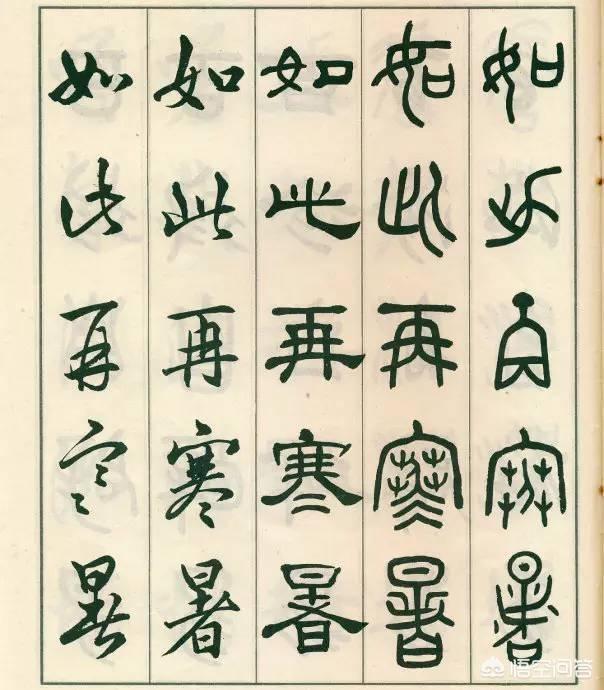 如此再寒暑
如此再寒暑
如此再寒暑
如此再寒暑
如此再寒暑
悟空问答